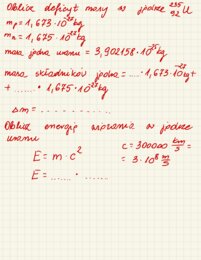 Oblicz deficyt masy w jądrze ²³⁵₉₂U
mp = 1,673 · 10⁻²⁷ kg
mn = 1,675 · 10⁻²⁷ kg
masa jądra uranu = 3,902158 · 10⁻²⁵ kg
masa składników jądra = ..... · 1,673 · 10⁻²⁷ kg +
+ ....... · 1,675 · 10⁻²⁷ kg
Δm = . . . . . . . . . .
Oblicz energię wiązania w jądrze
uranu
c = 300000 km/s =
= 3 · 10⁸ m/s
E = m · c²
E = ....... · ......